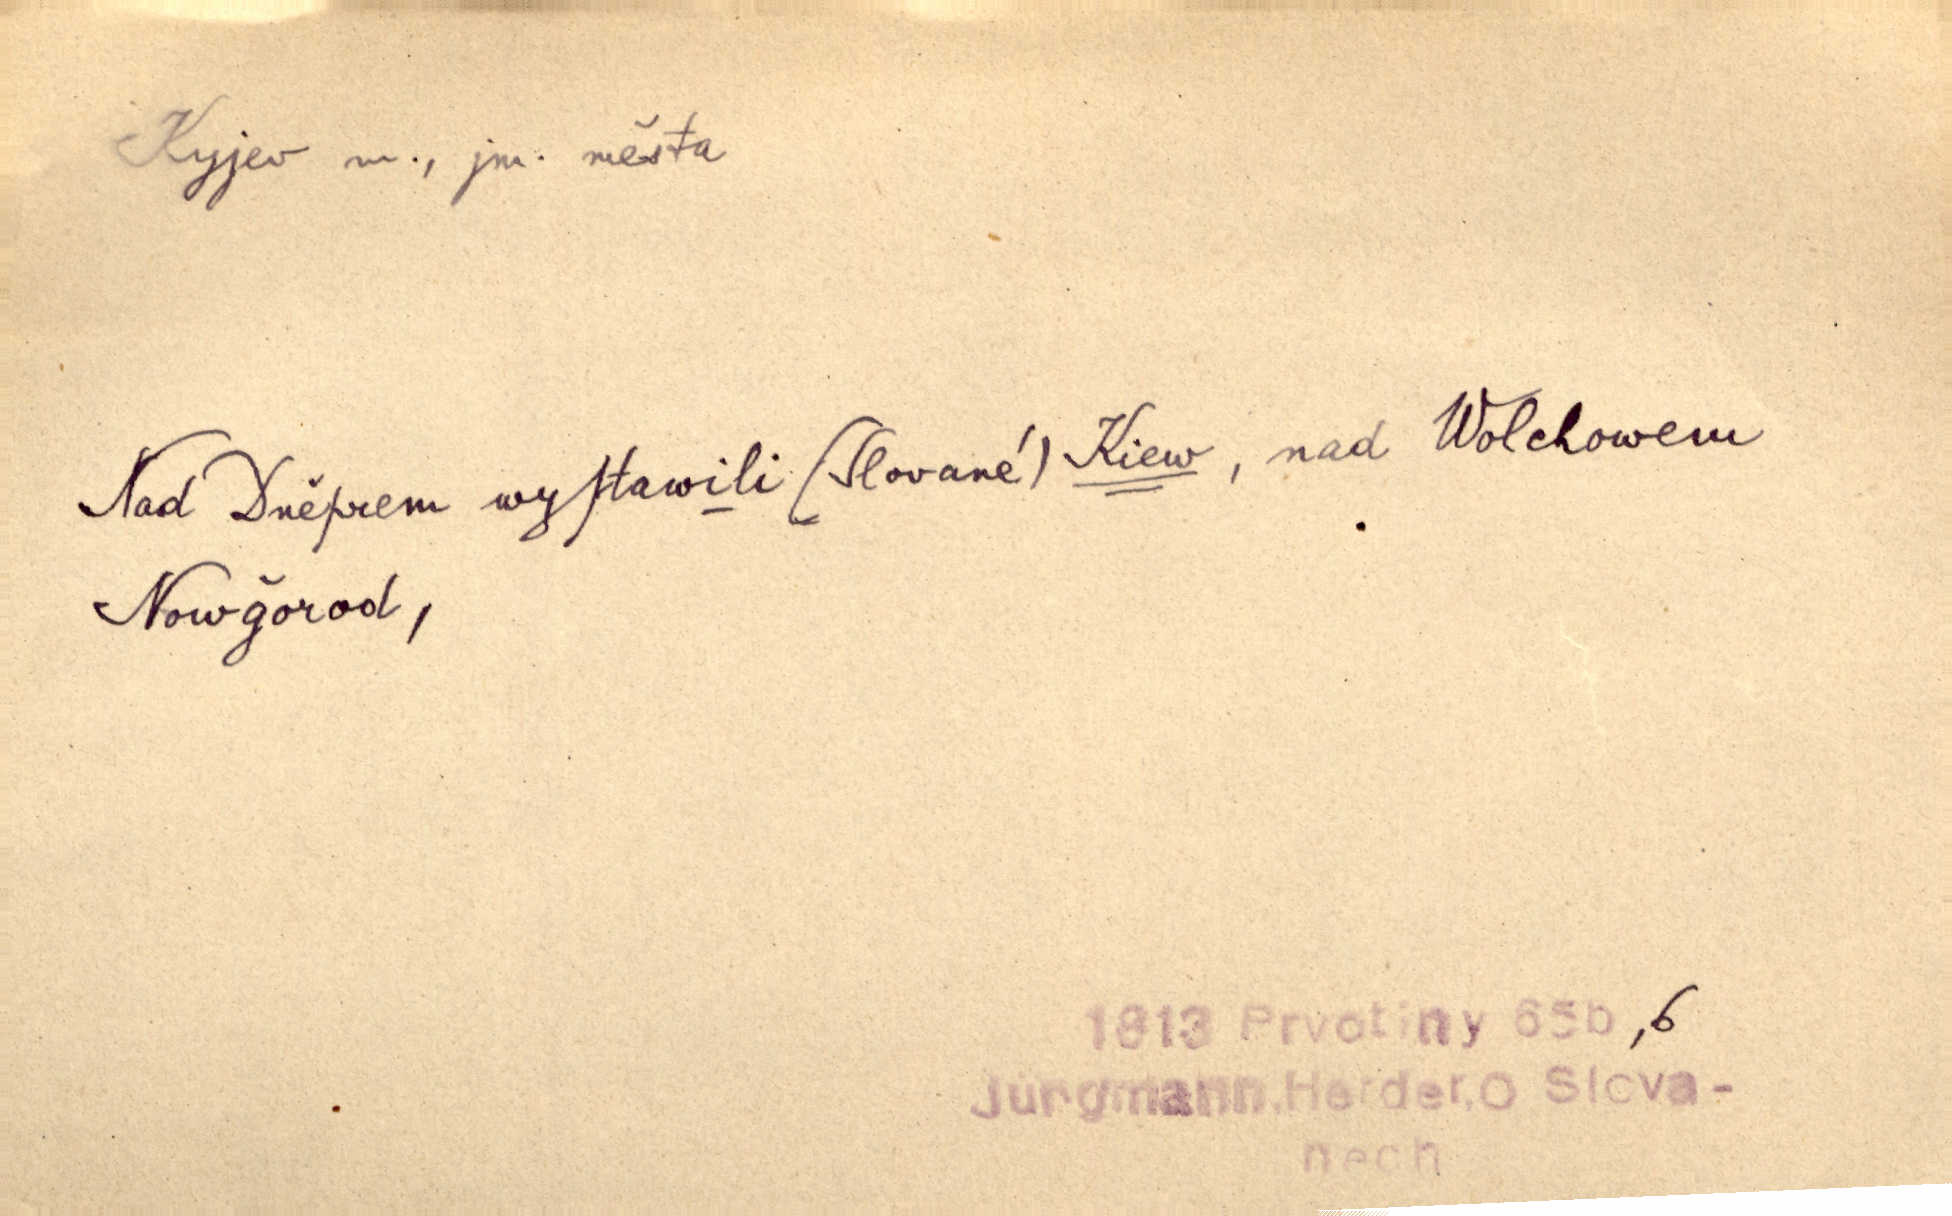 Kyjev m., jm. města
Nad Dněprem wyſtawili (Slované) Kiew, nad Wolchowem
Nowǧorod,
1813 Prvotiny 65b,6
Jungmann,Herder,O Slova-
nech